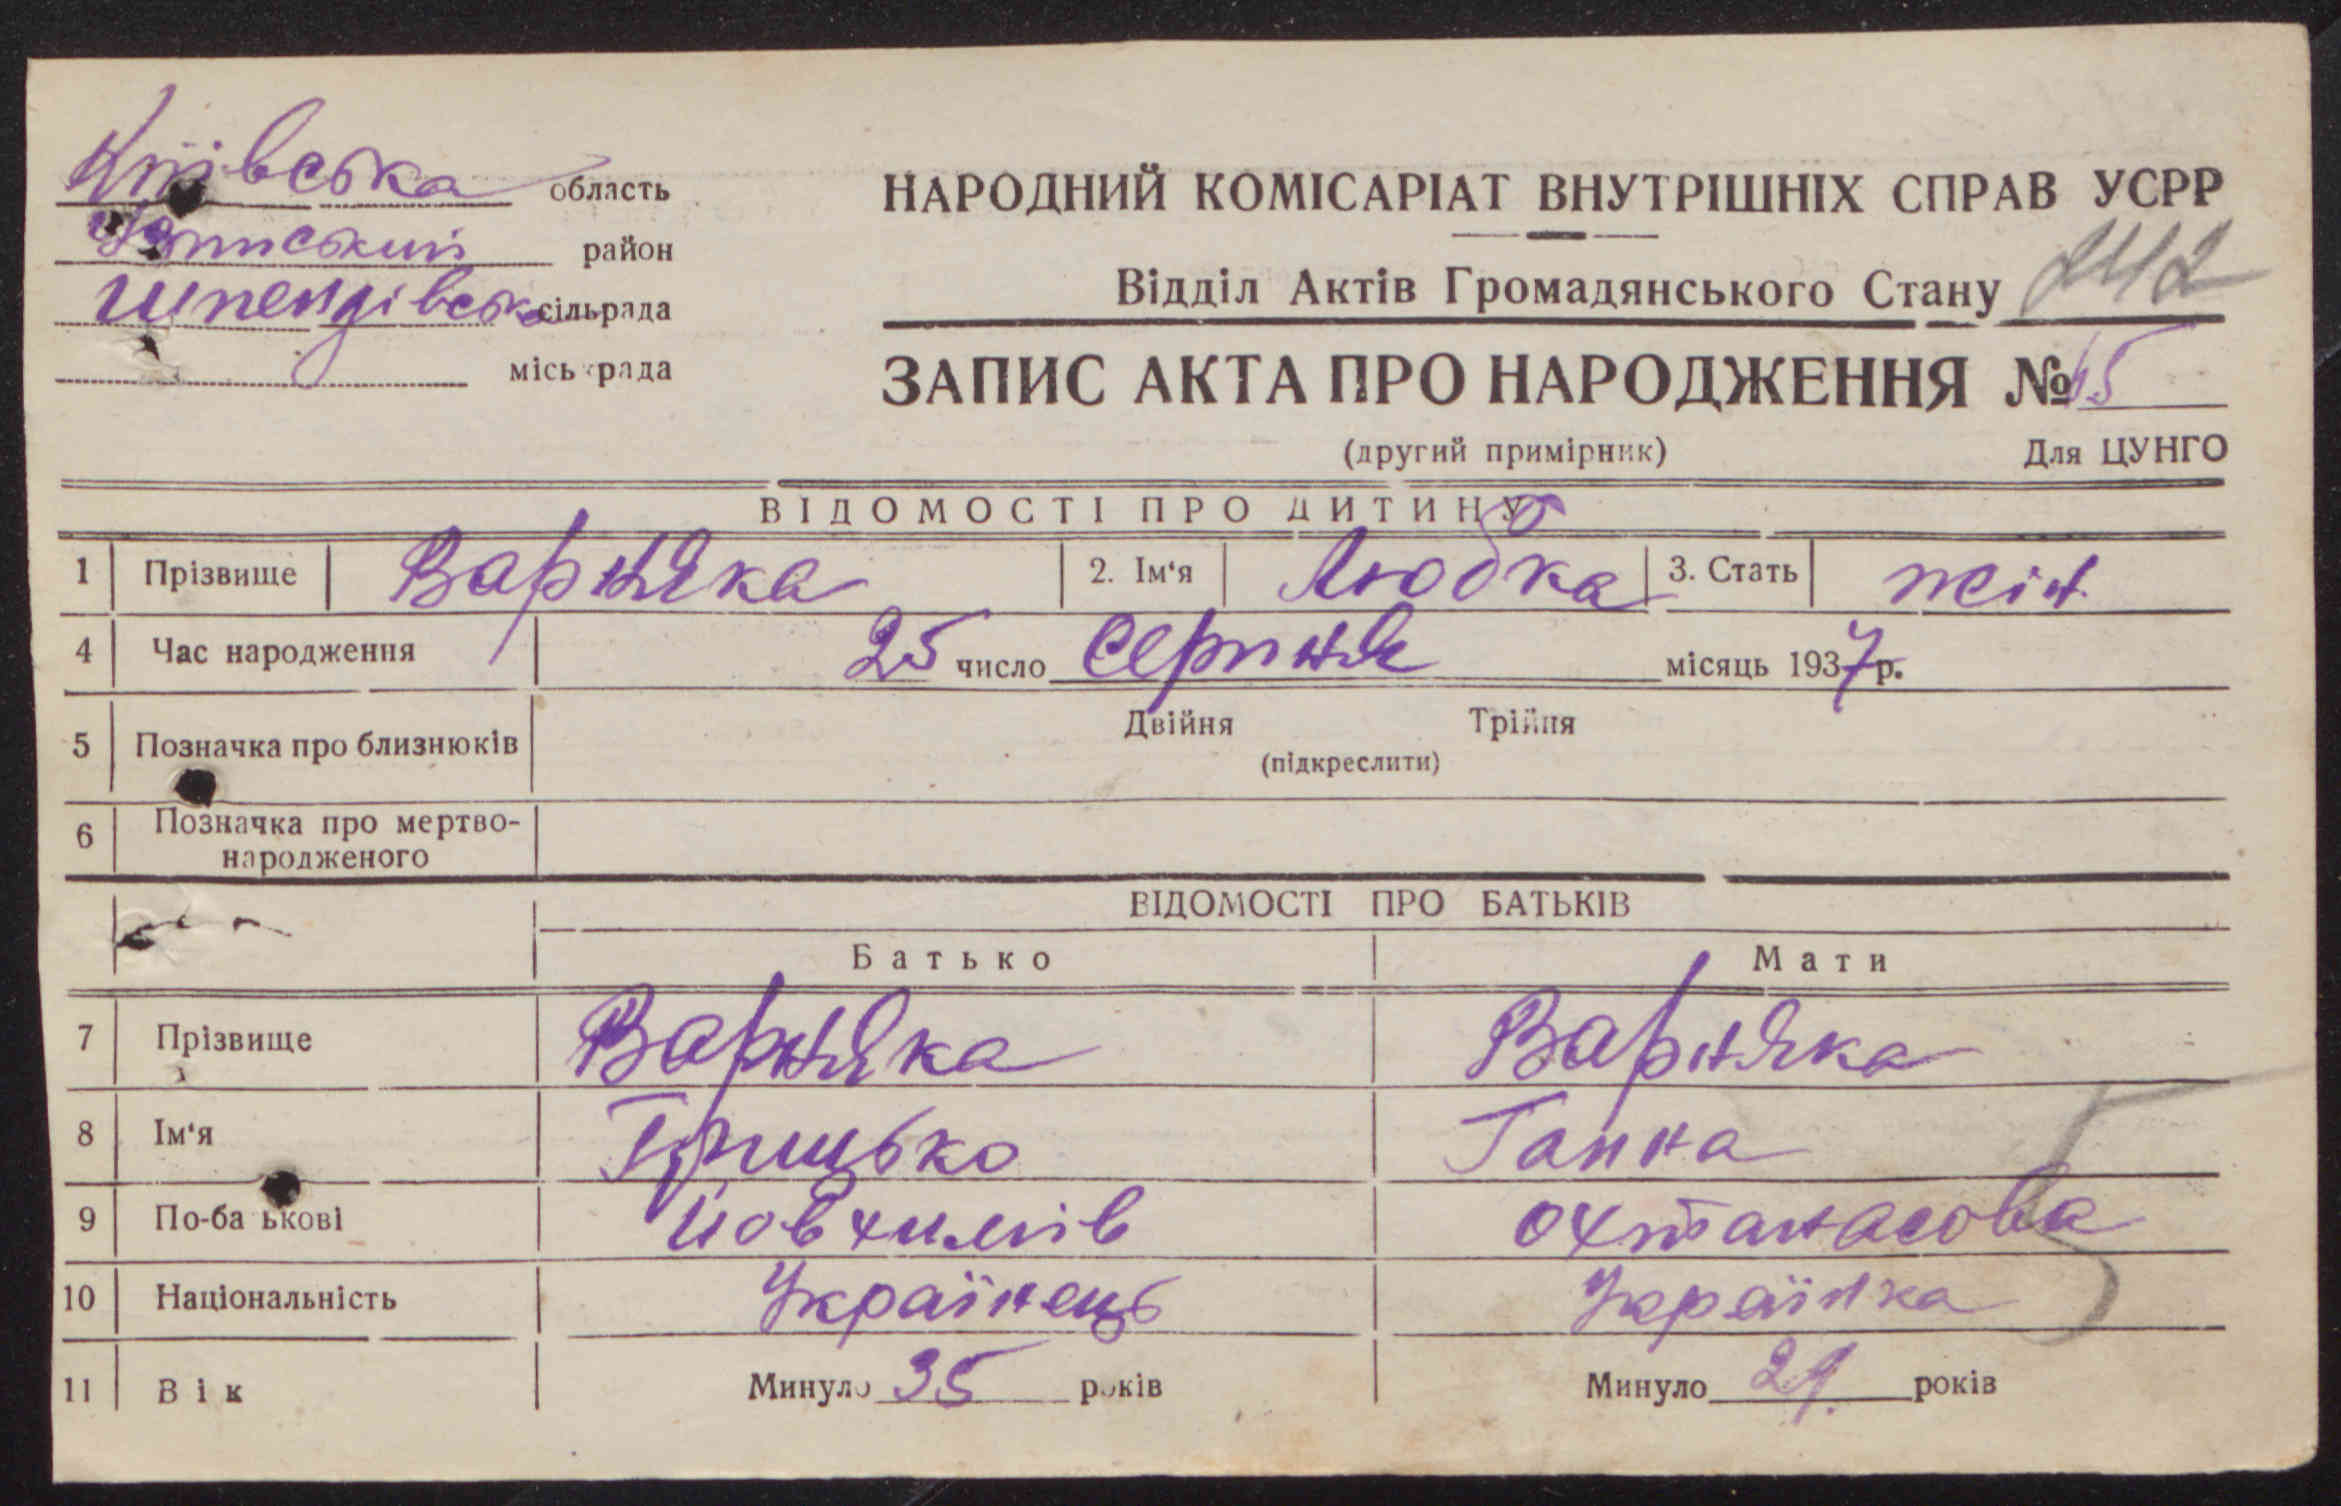 Київська область
район
Шпендівська сільрада
міськрада
НАРОДНИЙ КОМІСАРІАТ ВНУТРІШНІХ СПРАВ УСРР
Відділ Актів Громадянського Стану
ЗАПИС АКТА ПРО НАРОДЖЕННЯ №
(другий примірник) Для ЦУНГО
ВІДОМОСТІ ПРО ДИТИНУ
1 Прізвище Варняка 2. Ім'я Любка 3. Стать жін.
4 Час народження 25 число Серпня місяць 1937 р.
5 Позначка про близнюків Двійня Трійня
(підкреслити)
6 Позначка про мертво-
народженого
ВІДОМОСТІ ПРО БАТЬКІВ
Батько Мати
7 Прізвище Варняка Варняка
8 Ім'я Грицько Ганна
9 По-батькові Йовхимів Охтанасова
10 Національність Українець Українка
11 Вік Минуло 35 років Минуло років